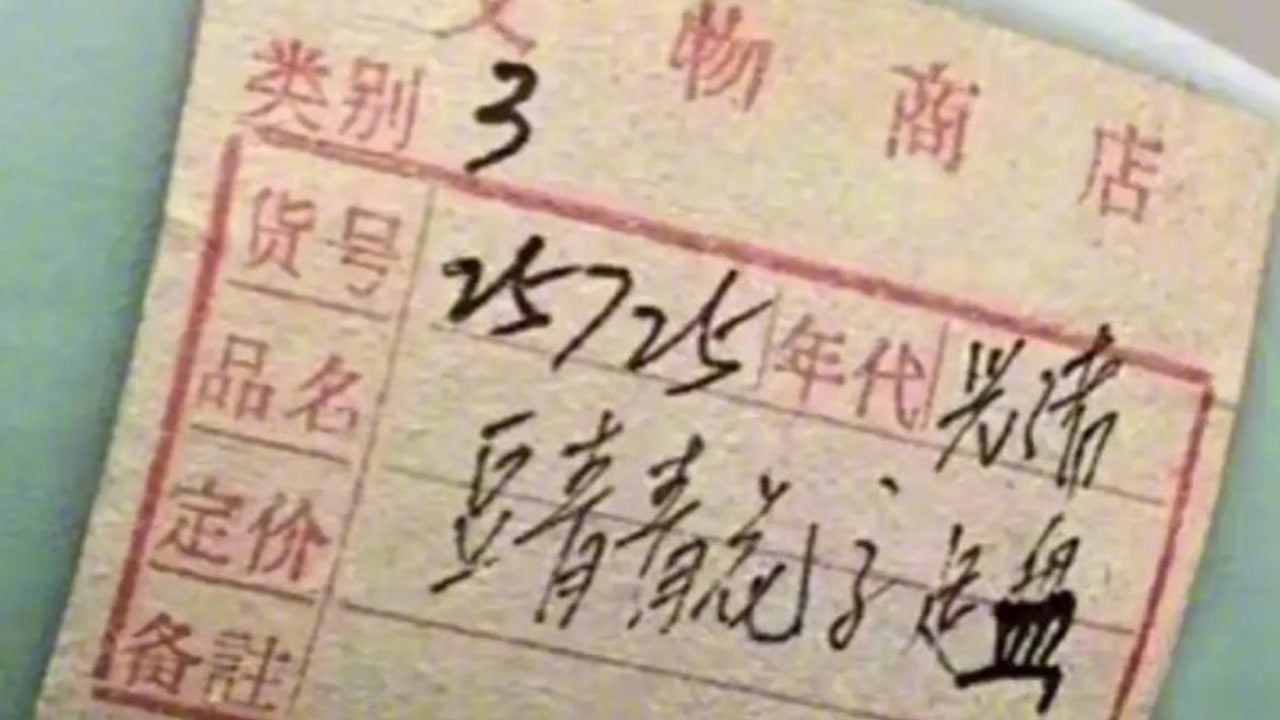 文物商店
类别 3
货号 25725 年代 清
品名 豆青青花 盘
定价
备註